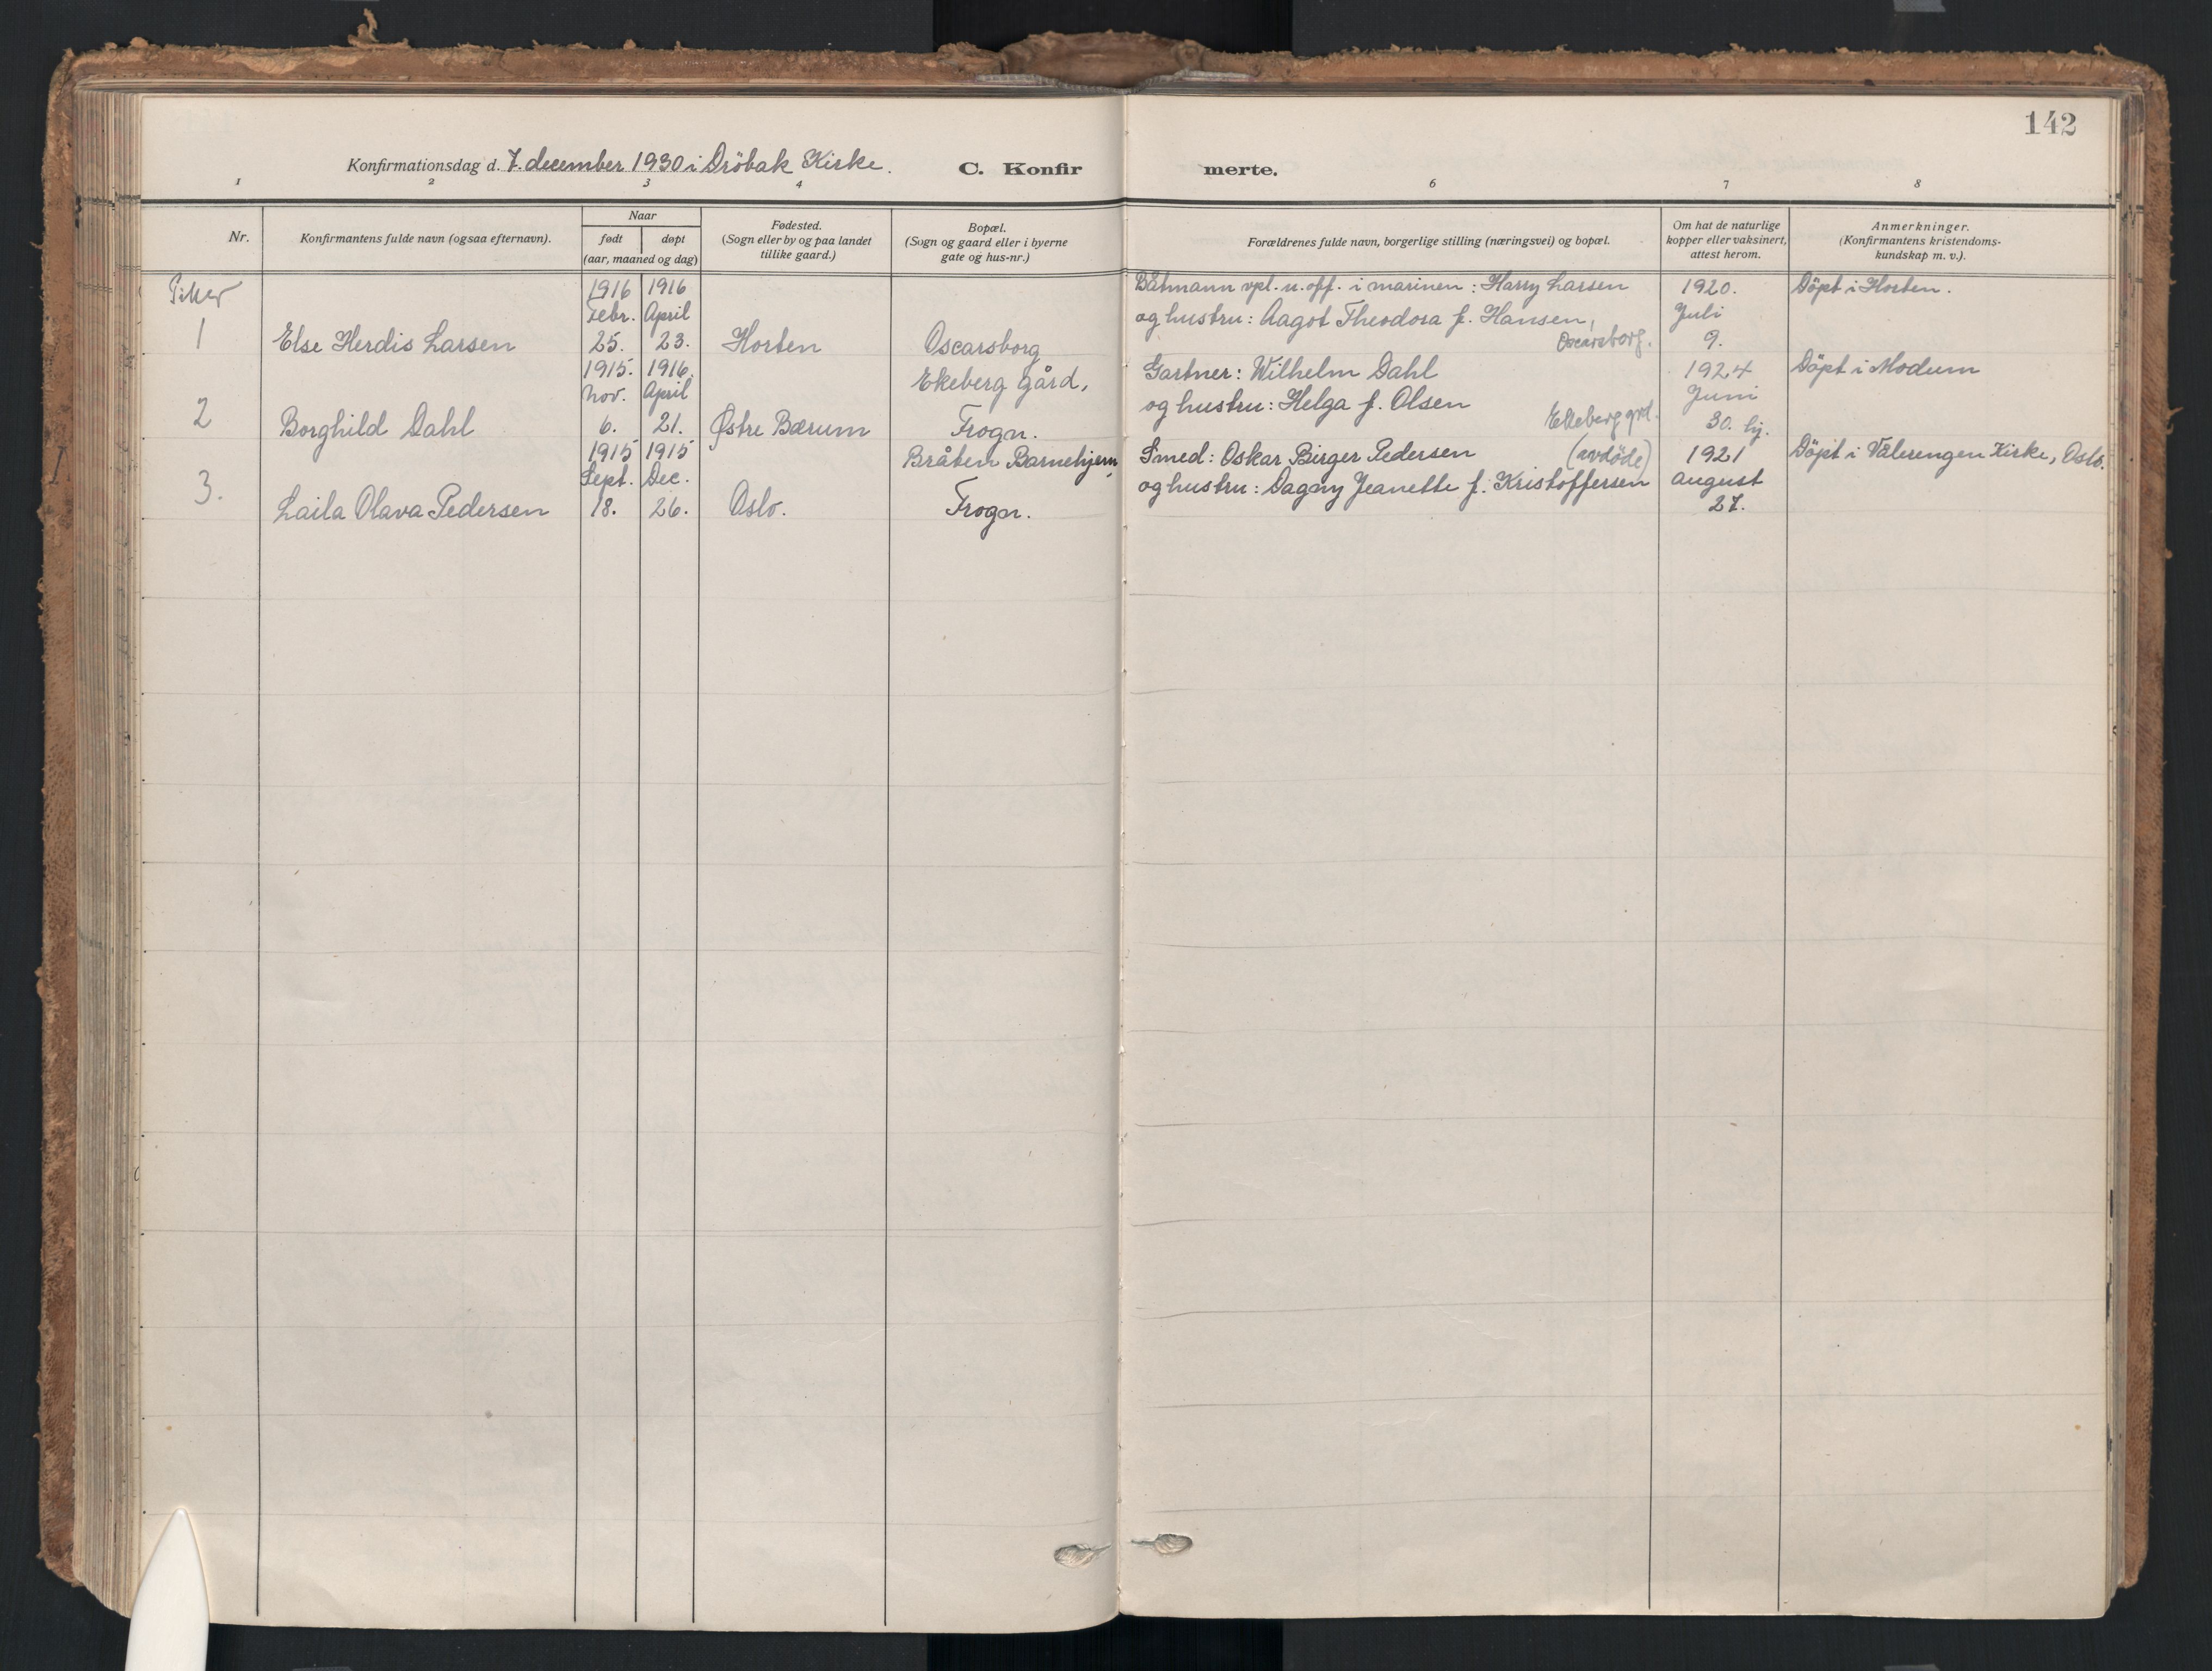 142
Konfirmationsdag d. 7. december 1930 i Dröbak Kirke.
C. Konfirmerte.
1 2 3 4 6 7 8
Nr.
Konfirmantens fulde navn (ogsaa efternavn).
Naar
født døpt
(aar, maaned og dag)
Fødested.
(Sogn eller by og paa landet
tillike gaard.)
Bopæl.
(Sogn og gaard eller i byerne
gate og hus-nr.)
Forældrenes fulde navn, borgerlige stilling (næringsvei) og bopæl.
Om hat de naturlige
kopper eller vaksinert,
attest herom.
Anmerkninger.
(Konfirmantens kristendoms-
kundskap m. v.).
Piker
1
Else Herdis Larsen
1916
Febr.
25.
1916
April
23.
Horten
Oscarsborg
Båtmann vpl. u. off. i marinen : Harry Larsen
og hustru: Aagot Theodora f. Hansen,
Oscarsborg.
1920.
Juli
9.
Döpt i Horten.
2
Borghild Dahl
1915.
Nov.
6.
1916.
April
21.
Østre Bærum
Ekeberg gård,
Frogn.
Gartner: Wilhelm Dahl
og hustru: Helga f. Olsen
Ekeberg grd.
1924
Juni
30. hj.
Döpt i Modum
3.
Laila Olava Pedersen
1915
Sept.
18.
1915
Dec.
26.
Oslo.
Bråten Barnehjem,
Frogn.
Smed: Oskar Birger Pedersen (avdöde)
og hustru: Dagny Jeanette f. Kristoffersen
1921
august
27.
Döpt i Vålerengen Kirke, Oslo.